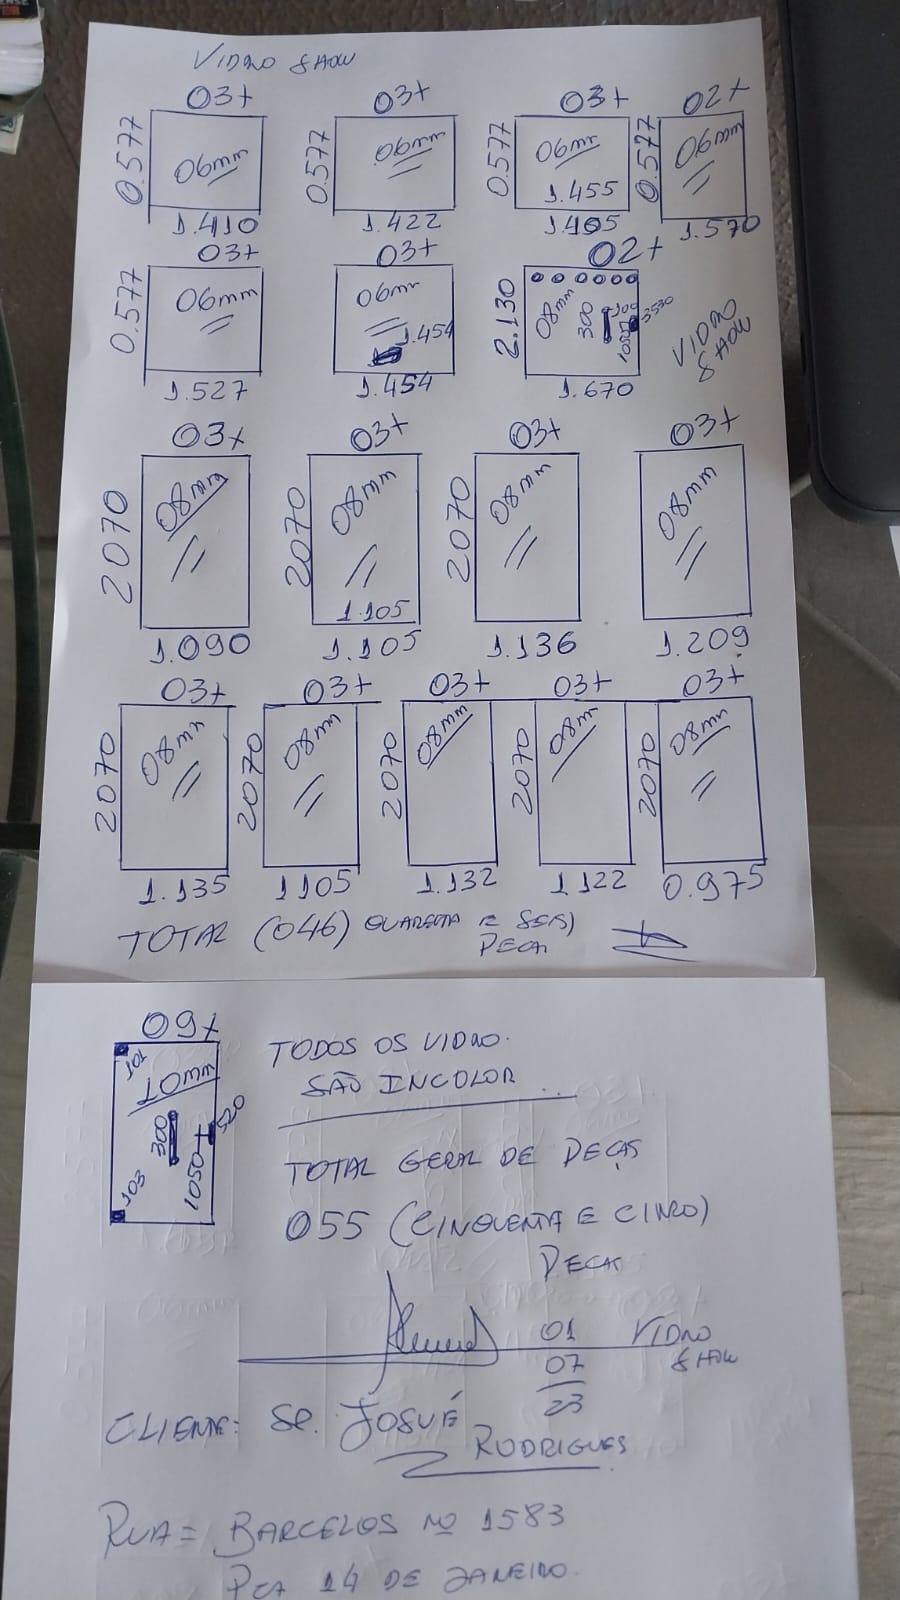 VIDRO SHOW
03+ 03+ 03+ 02+
0.577 06mm 0.577 06mm 0.577 06mm 0.577 06mm
1.455
1.410 1.422 1.405 1.570
03+ 03+ 02+
0.577 06mm 06mm 2.130 08mm 300 100 1050 3530
1.454
1.527 1.454 1.670
VIDRO
SHOW
03+ 03+ 03+ 03+
2070 08mm 2070 08mm 2070 08mm 08mm
1.105
1.090 1.105 1.136 1.209
03+ 03+ 03+ 03+ 03+
2070 08mm 2070 08mm 2070 08mm 2070 08mm 2070 08mm
1.135 1105 1.132 1.122 0.975
TOTAL (046) QUARENTA E SEIS)
PECA
09+
101
10mm
300 520
103 1050
TODOS OS VIDRO.
SÃO INCOLOR
TOTAL GERAL DE PEÇAS
055 (CINQUENTA E CINCO)
PECAS
01 VIDRO
07 SHOW
23
CLIENTE: SR. JOSUÉ
RODRIGUES
RUA = BARCELOS Nº 1583
PCA 14 DE JANEIRO.